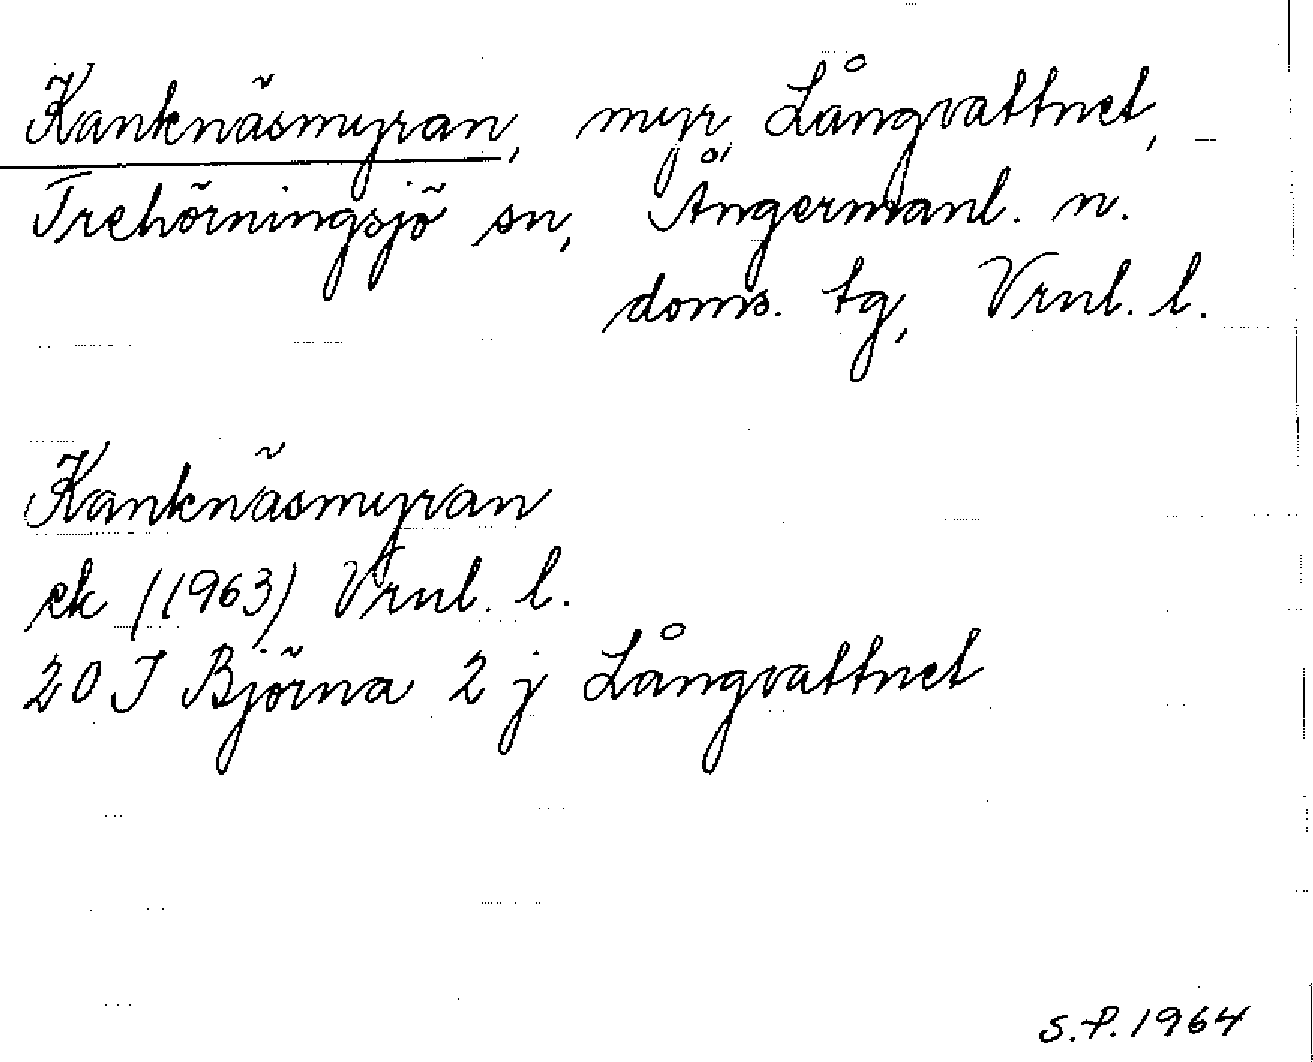 Kanknäsmyran, myr, Långvattnet, –
Trehörningsjö sn, Ångermanl. n.
doms. tg, Vrnl. l.
Kanknäsmyran
ek (1963) Vrnl. l.
20 I Björna 2 j Långvattnet
S.P. 1964